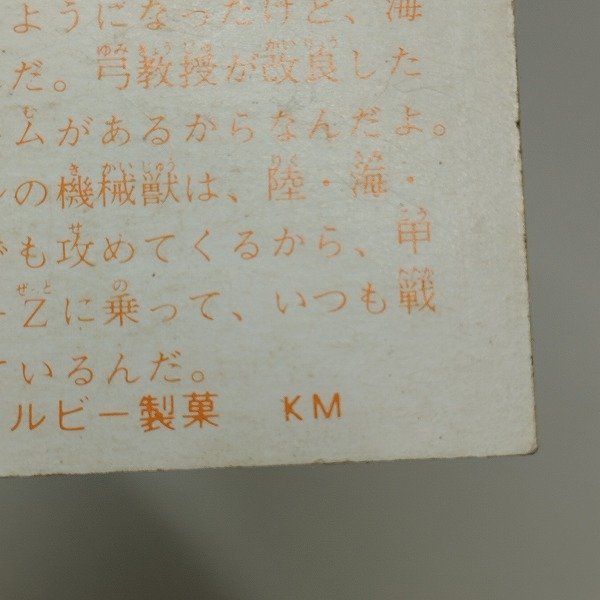 ようになったけど、海
だ。弓教授が改良した
ムがあるからなんだよ。
の機械獣は、陸・海・
でも攻めてくるから、甲
ーZに乗って、いつも戦
ているんだ。
ルビー製菓 KM